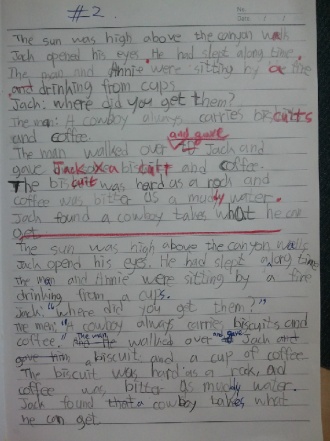 #2.
No.
Date / /
The sun was high above the canyon walk
Jack opened his eyes. He had slept along time.
The man and Annie were sitting by a fire
and drinking from cups
Jack: where did you get them?
The man: A cowboy always carries biscuits
and coffee.
and gave
The man walked over to Jack and
gave Jack a biscuit and coffee.
The biscuit was hard as a rock and
coffee was bitter as a muddy water.
Jack found a cowboy takes what he can
get
The sun was high above the canyon walls
Jack opend his eyes. He had slept along time
The man and Annie were sitting by a fire
drinking from a cups.
Jack: "where did you get them?"
The men: "A cowboy always carries biscuits and
coffee." The man walked over Jack and gave
a biscuit and a cup of coffee
The biscuit was hard as a rock, and
coffee was bitter as muddy water.
Jack found that a cowboy takes what
he can get